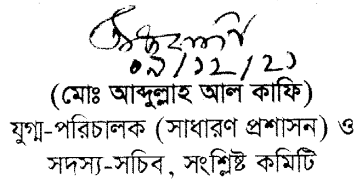 ০৯/১২/২১
(মোঃ আব্দুল্লাহ আল কাফি)
যুগ্ম-পরিচালক (সাধারণ প্রশাসন) ও
সদস্য-সচিব, সংশ্লিষ্ট কমিটি